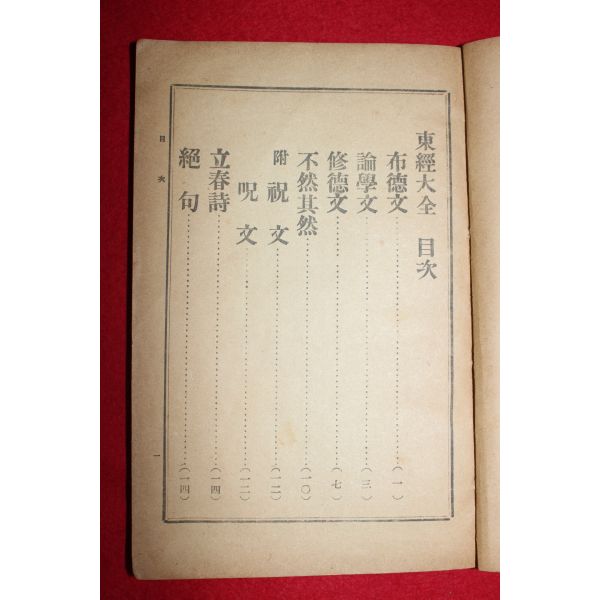 東經大全 目次
布德文……(一)
論學文……(三)
修德文……(七)
不然其然……(一〇)
附 祝文……(一二)
呪文……(一二)
立春詩……(一四)
絕句……(一四)
目次 一